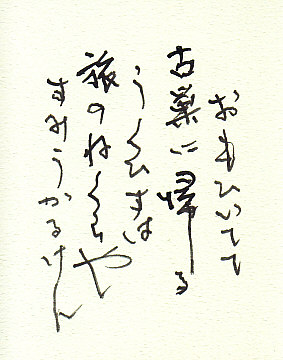 おもひいてて
古巣に帰る
うくひすは
旅のねくらや
すみうかるけん